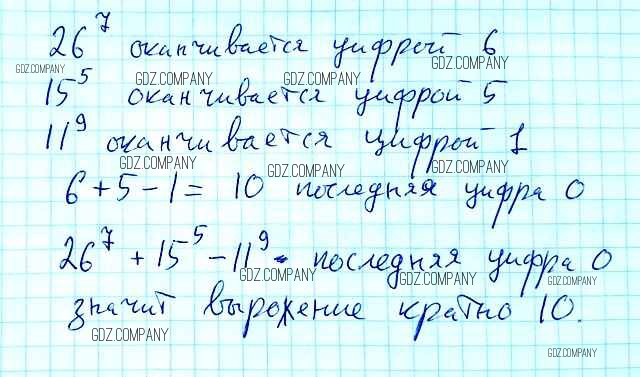 26⁷ оканчивается цифрой 6
GDZ.COMPANY
GDZ.COMPANY GDZ.COMPANY GDZ.COMPANY
15⁵ оканчивается цифрой 5
11⁹ оканчивается цифрой 1
GDZ.COMPANY GDZ.COMPANY GDZ.COMPANY
6 + 5 - 1 = 10 последняя цифра 0
26⁷ + 15⁵ - 11⁹ - последняя цифра 0
GDZ.COMPANY GDZ.COMPANY GDZ.COMPANY
значит выражение кратно 10.
GDZ.COMPANY GDZ.COMPANY
GDZ.COMPANY